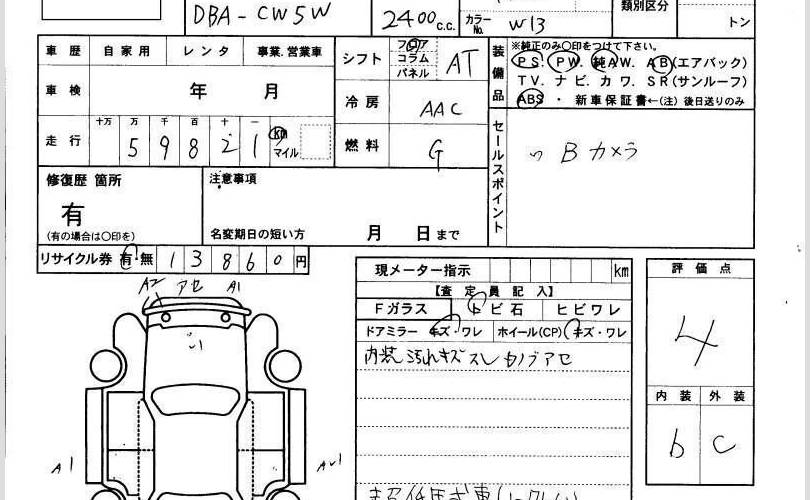 DBA-CW5W
2400 c.c.
カラーNo. W13
類別区分
トン
車歴 自家用 レンタ 事業.営業車
シフト フロア コラム パネル AT
装備品 ※純正のみ〇印をつけて下さい。
PS. PW. 純AW. AB(エアバック)
TV. ナビ. カワ. SR(サンルーフ)
ABS ・ 新車保証書←(注) 後日送りのみ
車検 年 月
冷房 AAC
走行 十万 万 千 百 十 一
59821 km マイル
燃料 G
セールスポイント
Bカメラ
修復歴 箇所
有
(有の場合は〇印を)
注意事項
名変期日の短い方 月 日 まで
リサイクル券 有・無 13860 円
現メーター指示 km
【査定員記入】
Fガラス トビ石 ヒビワレ
ドアミラー キズ・ワレ ホイール(CP) キズ・ワレ
内装汚れキズスレ
評価点
4
内装 外装
b C
A2 アセ A1
A1